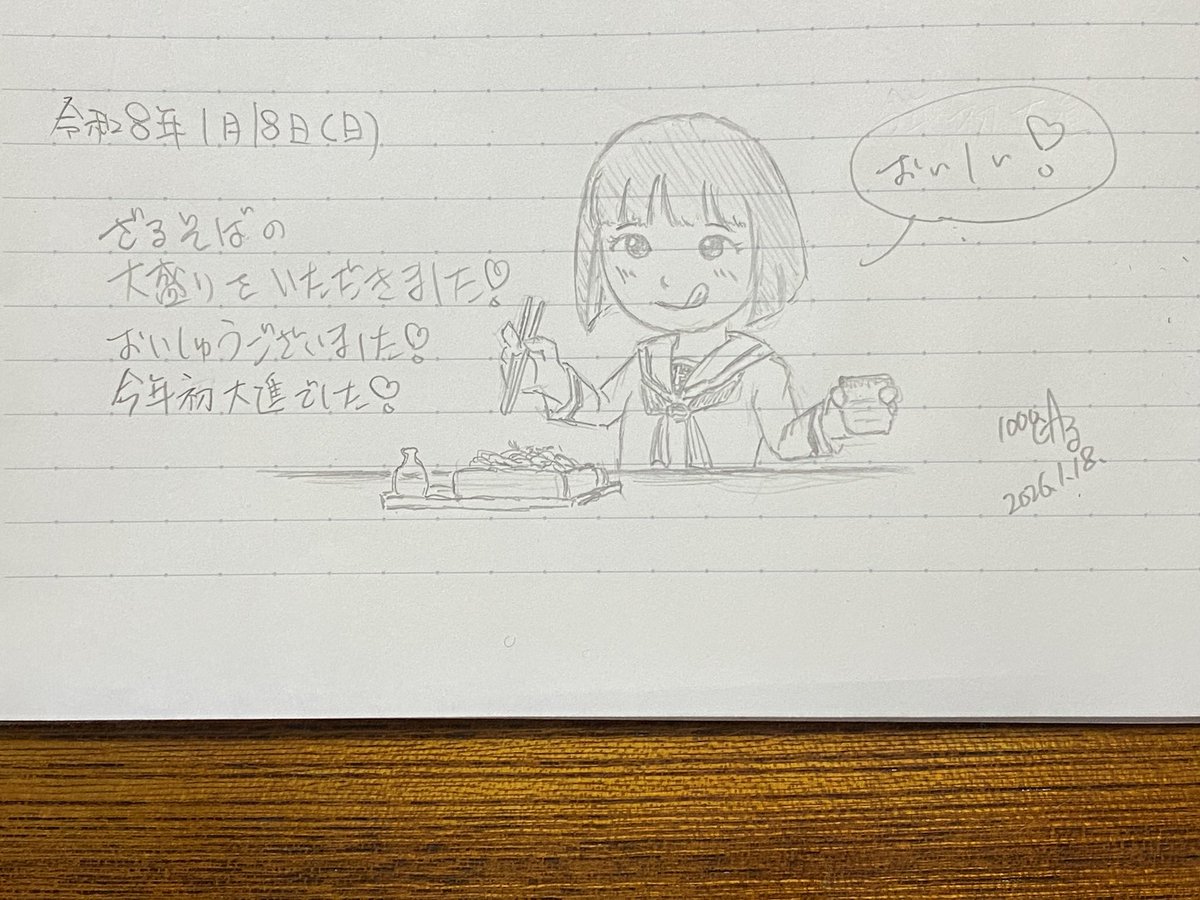 令和8年1月18日(日)
ざるそばの
大盛りをいただきました♡
おいしゅうございました♡
今年初大進でした♡
おいしい♡
2026.1.18.